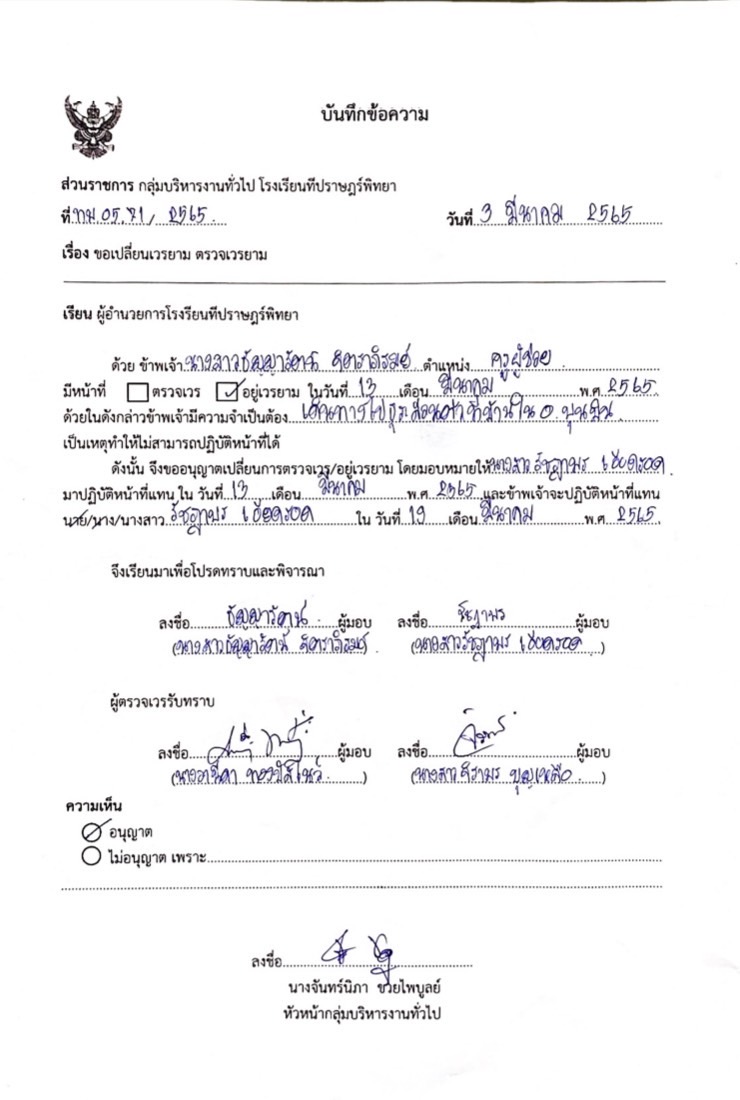 บันทึกข้อความ
ส่วนราชการ กลุ่มบริหารงานทั่วไป โรงเรียนทีปราษฎร์พิทยา
ที่ ทม 05.71/ 2565 วันที่ 3 มีนาคม 2565
เรื่อง ขอเปลี่ยนเวรยาม ตรวจเวรยาม
เรียน ผู้อำนวยการโรงรียนทีปราษฎร์พิทยา
ด้วย ข้าพเจ้า นางสาวธัญญารัตน์ ตำแหน่ง ครูผู้ช่วย
มีหน้าที่ ตรวจเวร อยู่เวรยาม ในวันที่ 13 เดือน มีนาคม พ.ศ 2565
ด้วยในดังกล่าวข้าพเจ้ามีความจำเป็นต้อง เดินทางไปธุระ ที่บ้านใน อ. พุนพิน
เป็นเหตุทำให้ไม่สามารถปฏิบัติหน้าที่ได้
ดังนั้น จึงขออนุญาตเปลี่ยนการตรวจเวร/อยู่เวรยาม โดยมอบหมายให้ นางสาว รัชฎาพร
มาปฏิบัติหน้าที่แทน ใน วันที่ 13 เดือน มีนาคม พ.ศ 2565 และข้าพเจ้าจะปฏิบัติหน้าที่แทน
นาย/นาง/นางสาว รัชฎาพร ใน วันที่ 19 เดือน มีนาคม พ.ศ 2565
จึงเรียนมาเพื่อโปรดทราบและพิจารณา
ลงชื่อ ธัญญารัตน์ ผู้มอบ ลงชื่อ รัชฎาพร ผู้มอบ
(นางสาวธัญญารัตน์ ) (นางสาวรัชฎาพร )
ผู้ตรวจเวรรับทราบ
ลงชื่อ ผู้มอบ ลงชื่อ ผู้มอบ
( ) (นางสาว บุญเหลือ)
ความเห็น
อนุญาต
ไม่อนุญาต เพราะ
ลงชื่อ
นางจันทร์นิภา ช่วยไพบูลย์
หัวหน้ากลุ่มบริหารงานทั่วไป